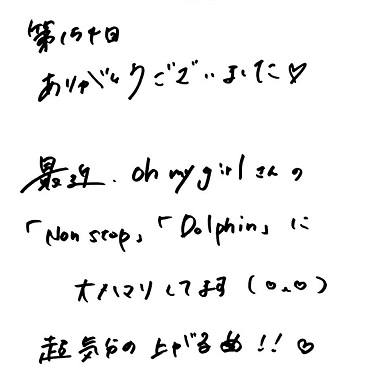 第154回
ありがとうございました♡
最近、Oh my girlさんの
「Non stop」「Dolphin」に
大ハマりしてます(o.o)
超気分の上がる曲!!♡